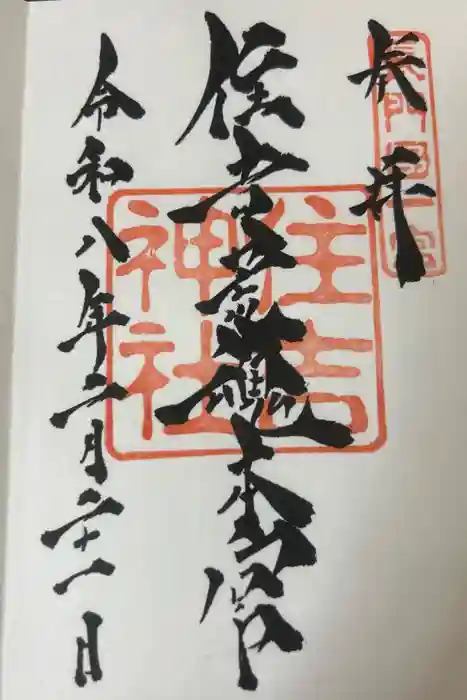 奉拝
長門國一宮
住吉荒魂本宮
住吉
神社
令和八年二月二十一日